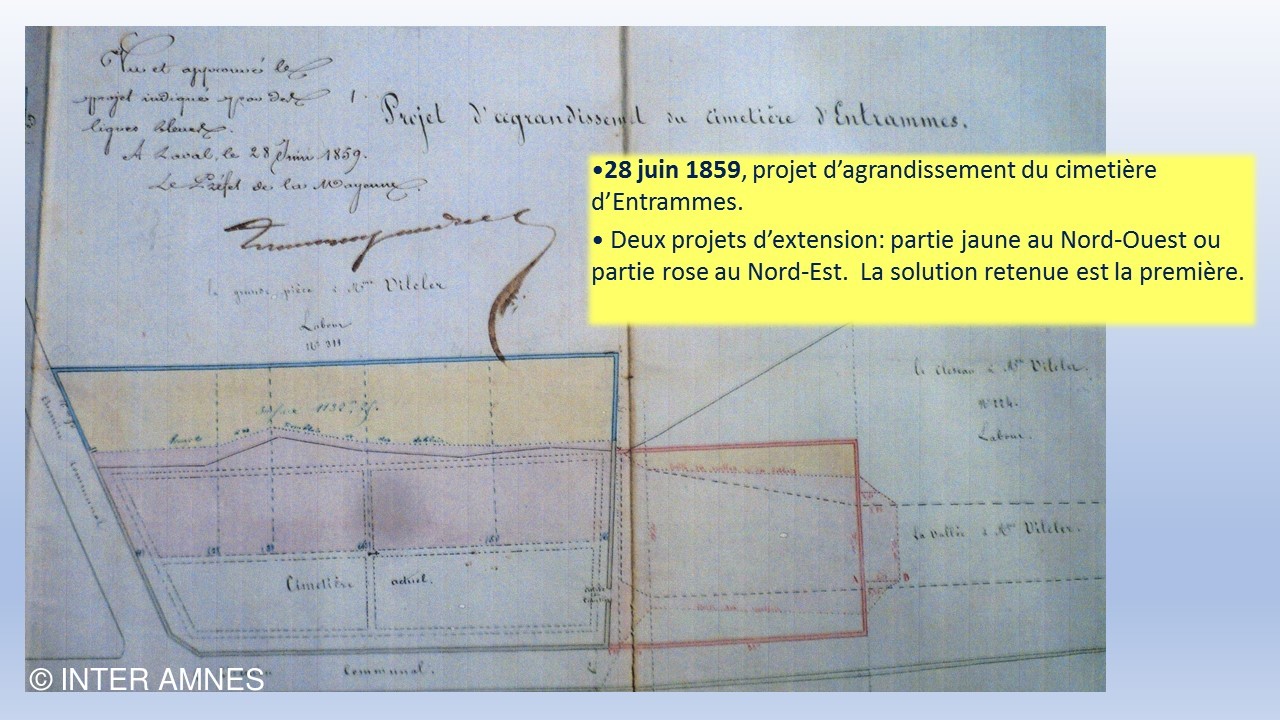 Vu et approuvé le
projet indiqué par des
lignes bleues.
A Laval, le 28 Juin 1859.
Le Préfet de la Mayenne.
Projet d'agrandissement du cimetière d'Entrammes.
•28 juin 1859, projet d’agrandissement du cimetière
d’Entrammes.
• Deux projets d’extension: partie jaune au Nord-Ouest ou
partie rose au Nord-Est. La solution retenue est la première.
la grande pièce à Mme Viteler
Labour
N° 211
le closeau à Mme Viteler.
N° 224.
Labour.
La Vallée à Mme Viteler.
Chemin communal
Cimetière actuel.
A B
Communal.
© INTER AMNES